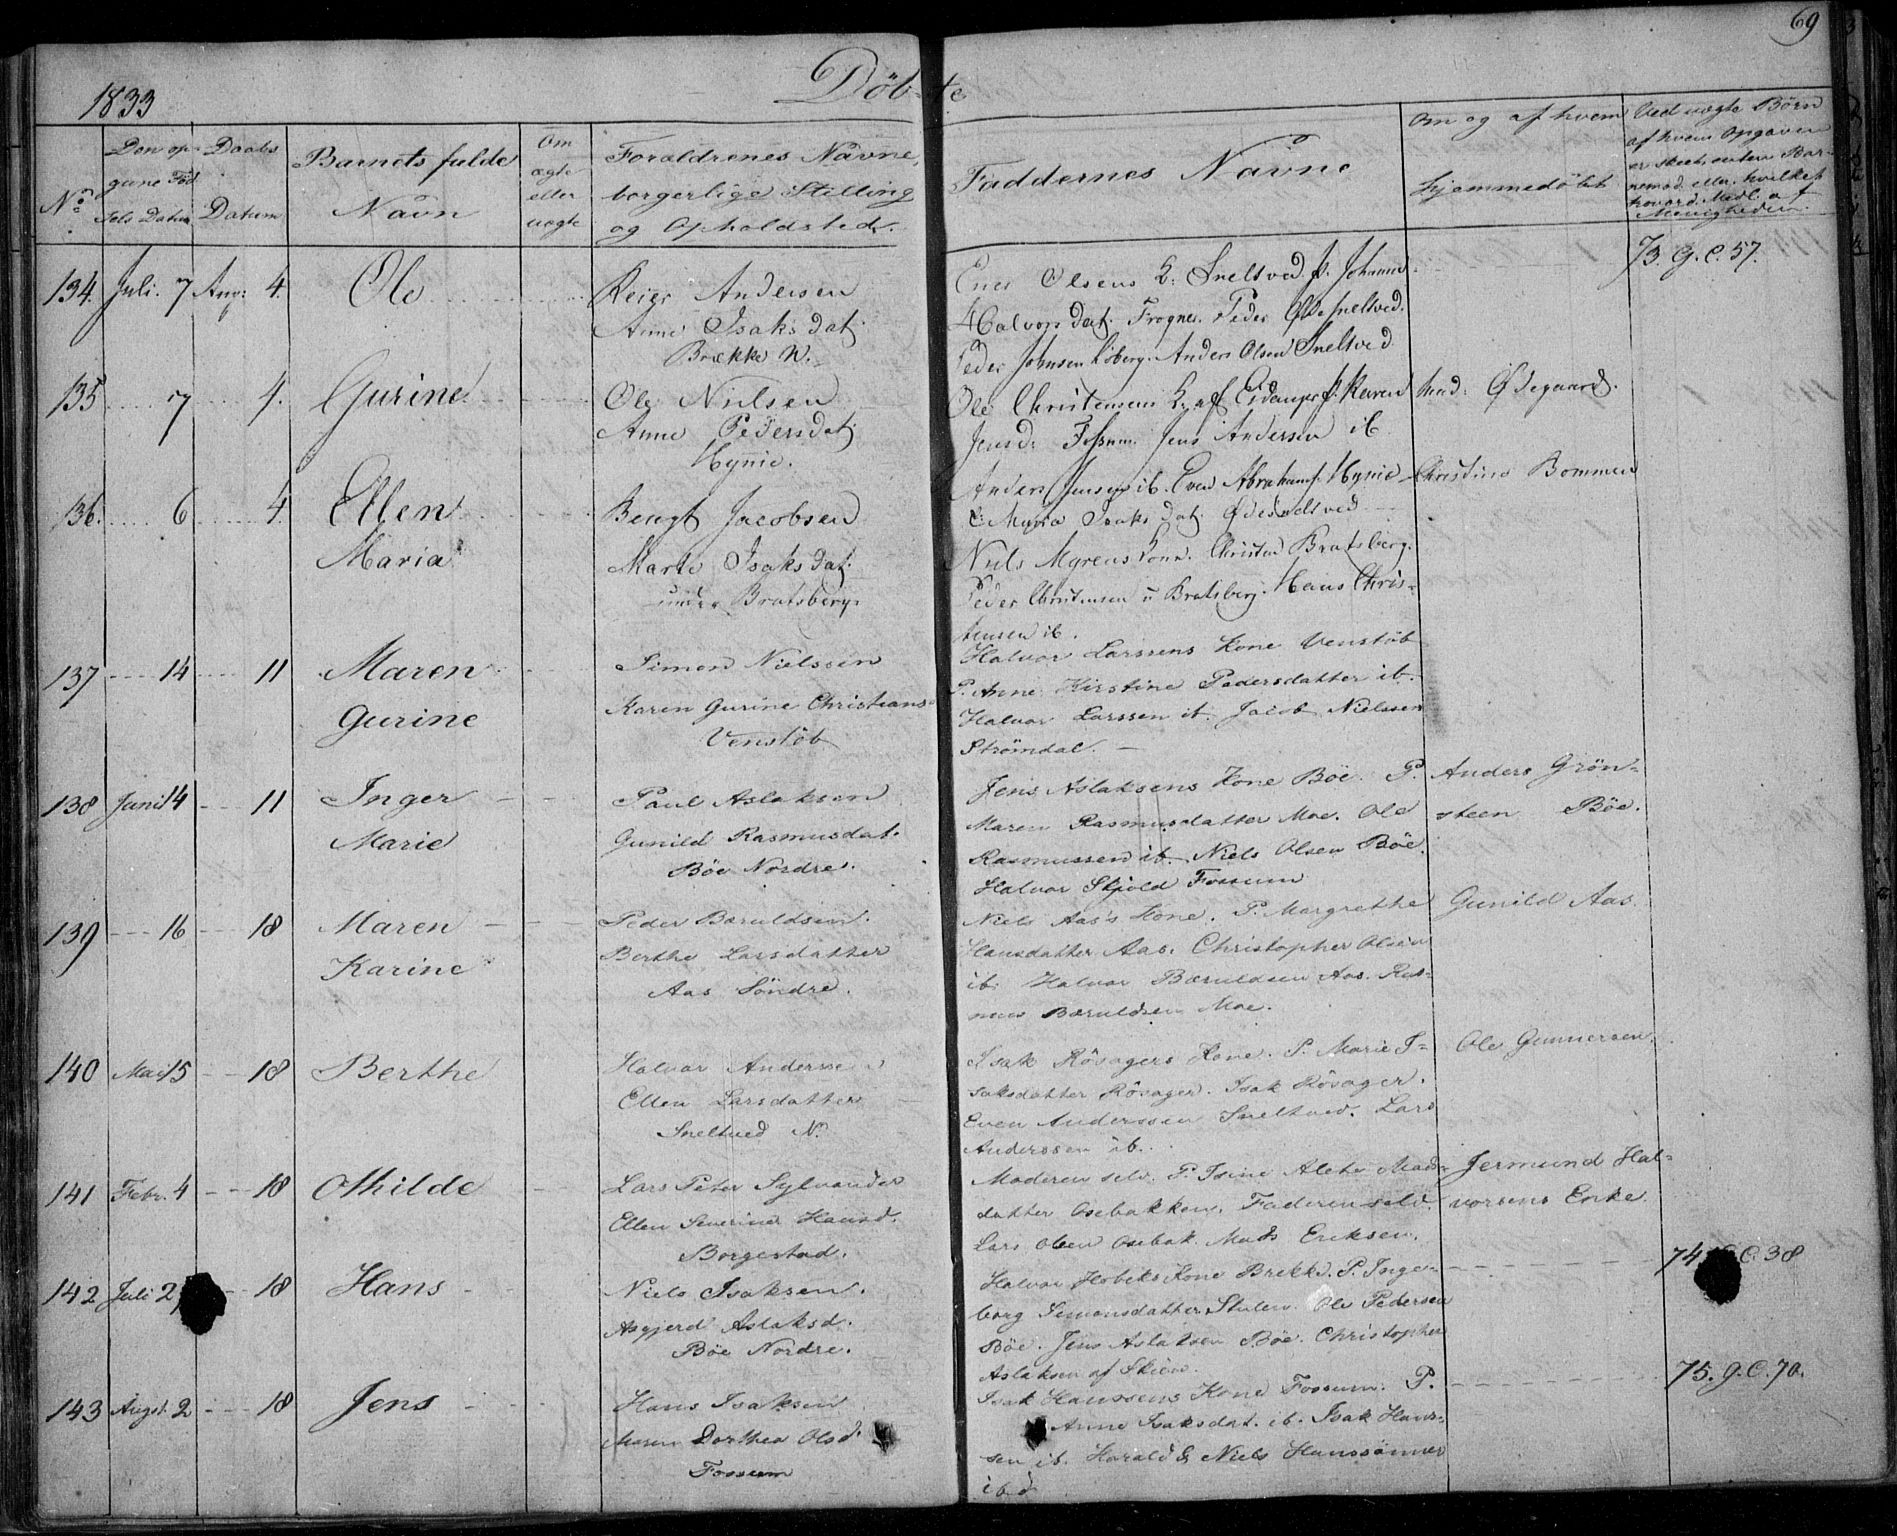 69
1833
Döbte
No.
Den opgivne Fødsels Datum
Daabs Datum
Barnets fulde Navn
Om ægte eller uægte
Forældrenes Navne, borgerlige Stilling og Opholdsted.
Faddernes Navne
Om og af hvem hjemmedöbt
Ved uægte Børn af hvem Opgaven er skeet, enten Barnemod. eller hvilket hæderl. Medl. af Menigheden.
134. Juli. 7 Aug: 4. Ole
Anders​en
Anne Isaksdat.
Brække N.
Olsens K: Sneltved. P. Johanne
Halvorsdat. Frogner. Peder Sneltved.
Peder Johnsen. Anders Olsen Sneltved
73. G. C. 57.
135 7 4. Gurine
Ole Nielsen
Anne Pedersdat.
Hynie.
Ole Christensens K. af P. Karen
Jensd: Fossum. Jens Andersen ib
Ødegaard.
136. 6 4. Ellen
Maria
Bengt Jacobsen
Marte Isaksdat.
under Bratsberg.
Anders Jensen ib. Even Abrahams. Hynie
Maria Isaksdat.
Niels Myrens Kone. Christen Bratsberg.
Peder Christensen u Bratsberg. Hans Chris-
tensen ib.
Christine Bommen
137 14 11 Maren
Gurine
Simon Nielssen
Karen Gurine Christians-
Venstöb
Halvor Larssens Kone Venstöb
P. Anne Kirstine Pedersdatter ib.
Halvor Larssen ib. Jacob Nielssen
Strömdal.
138 Juni 14 11 Inger
Marie
Paul Aslaksen
Gunild Rasmusdat.
Böe Nordre.
Jens Aslaksens Kone Böe. P.
Maren Rasmusdatter Moe. Ole
Rasmussen ib. Niels Olsen Böe.
Halvor Skjold Fossum
Anders Grön-
steen Böe.
139 16 18 Maren
Karine
Peder Bæruldsen.
Berthe Larsdatter
Aas Söndre.
Niels Aas's Kone. P. Margrethe
Hansdatter Aas. Christopher Olsen
ib. Halvor Bæruldsen Aas. Ras-
mus Bæruldsen Moe.
Gunild Aas.
140 Mai 15 18 Berthe
Halvor Anderssen
Ellen Larsdatter
Sneltved N.
Isak Rösagers Kone. P. Marie I-
saksdatter Rösager. Isak Rösager.
Even Anderssen Sneltved. Lars
Anderssen ib.
Ole Gunnersen.
141 Febr. 4 18 Othilde
Lars Peter Sylvander
Ellen Severine Hansd.
Borgestad.
Moderen selv. P. Isine Alete Mads-
datter Osebakken. Faderen selv.
Lars Olsen Osebak. Mads Eriksen.
Jermund Hal-
vorsens Enke
142 Juli 2 18 Hans
Niels Isaksen.
Asgjerd Aslaksd.
Böe Nordre.
Halvor Kone Brekke. P. Inge-
borg Simonsdatter. Ole Pedersen
Böe. Jens Aslaksen Böe. Christopher
Aslaksen af Skien.
74 C. 38
143 Augst. 2 18 Jens
Hans Isaksen
Maren Dorthea Olsd.
Fossum
Isak Hanssens Kone Fossum. P.
Anne Isaksdat. ib. Isak Hans-
sen ib. Harald & Niels Hanssönner
ibd
75. G. C. 70.